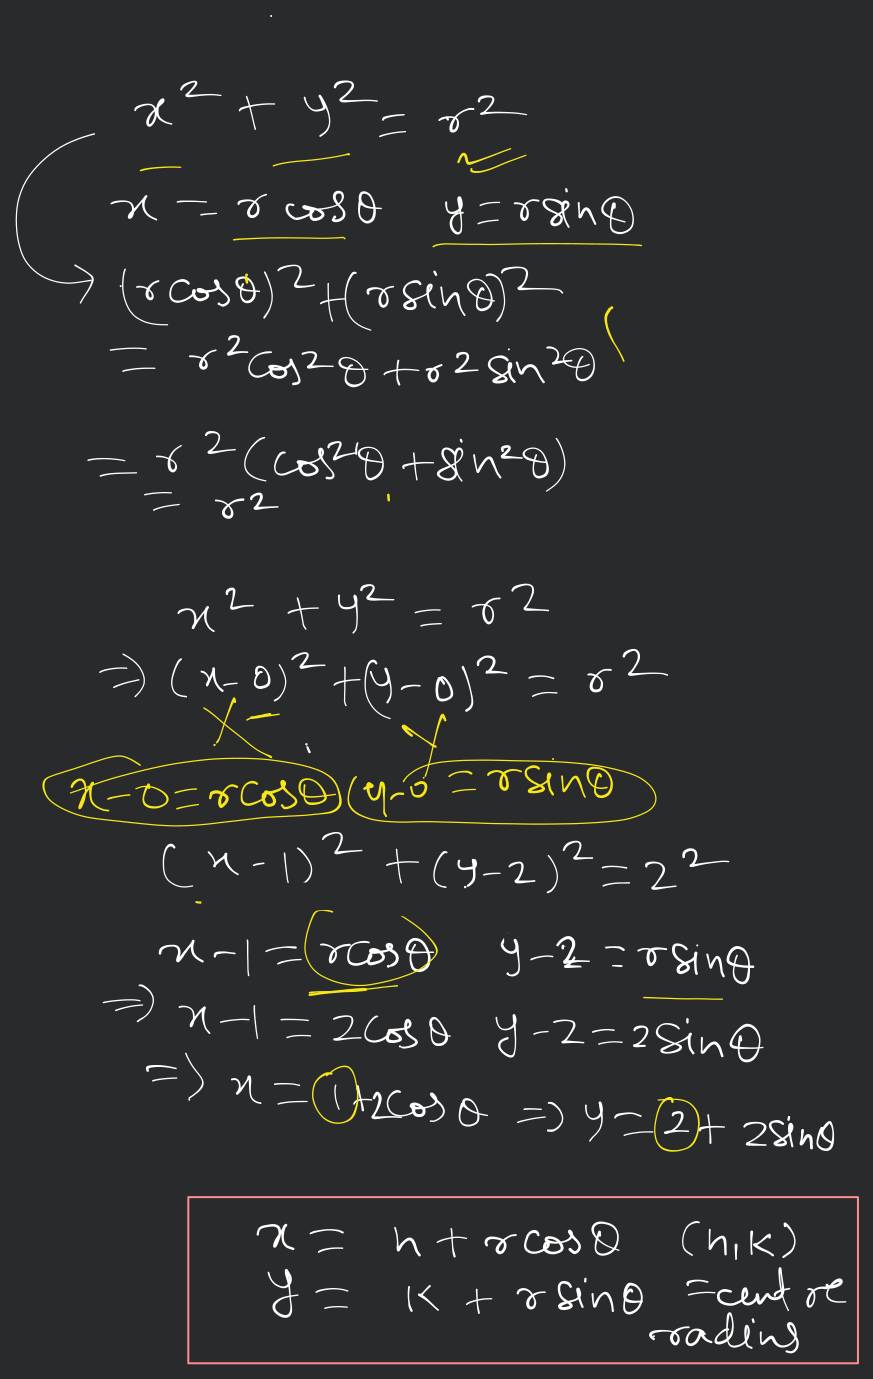 x² + y² = r²
x = r cosθ y = r sinθ
(r cosθ)² + (r sinθ)²
= r² cos²θ + r² sin²θ
= r² (cos²θ + sin²θ)
= r²
x² + y² = r²
⇒ (x-0)² + (y-0)² = r²
x-0 = r cosθ y-0 = r sinθ
(x-1)² + (y-2)² = 2²
x-1 = r cosθ y-2 = r sinθ
⇒ x-1 = 2cosθ y-2 = 2sinθ
⇒ x = 1+2cosθ ⇒ y = 2 + 2sinθ
x = h + r cosθ (h,k)
y = k + r sinθ = centre
radius